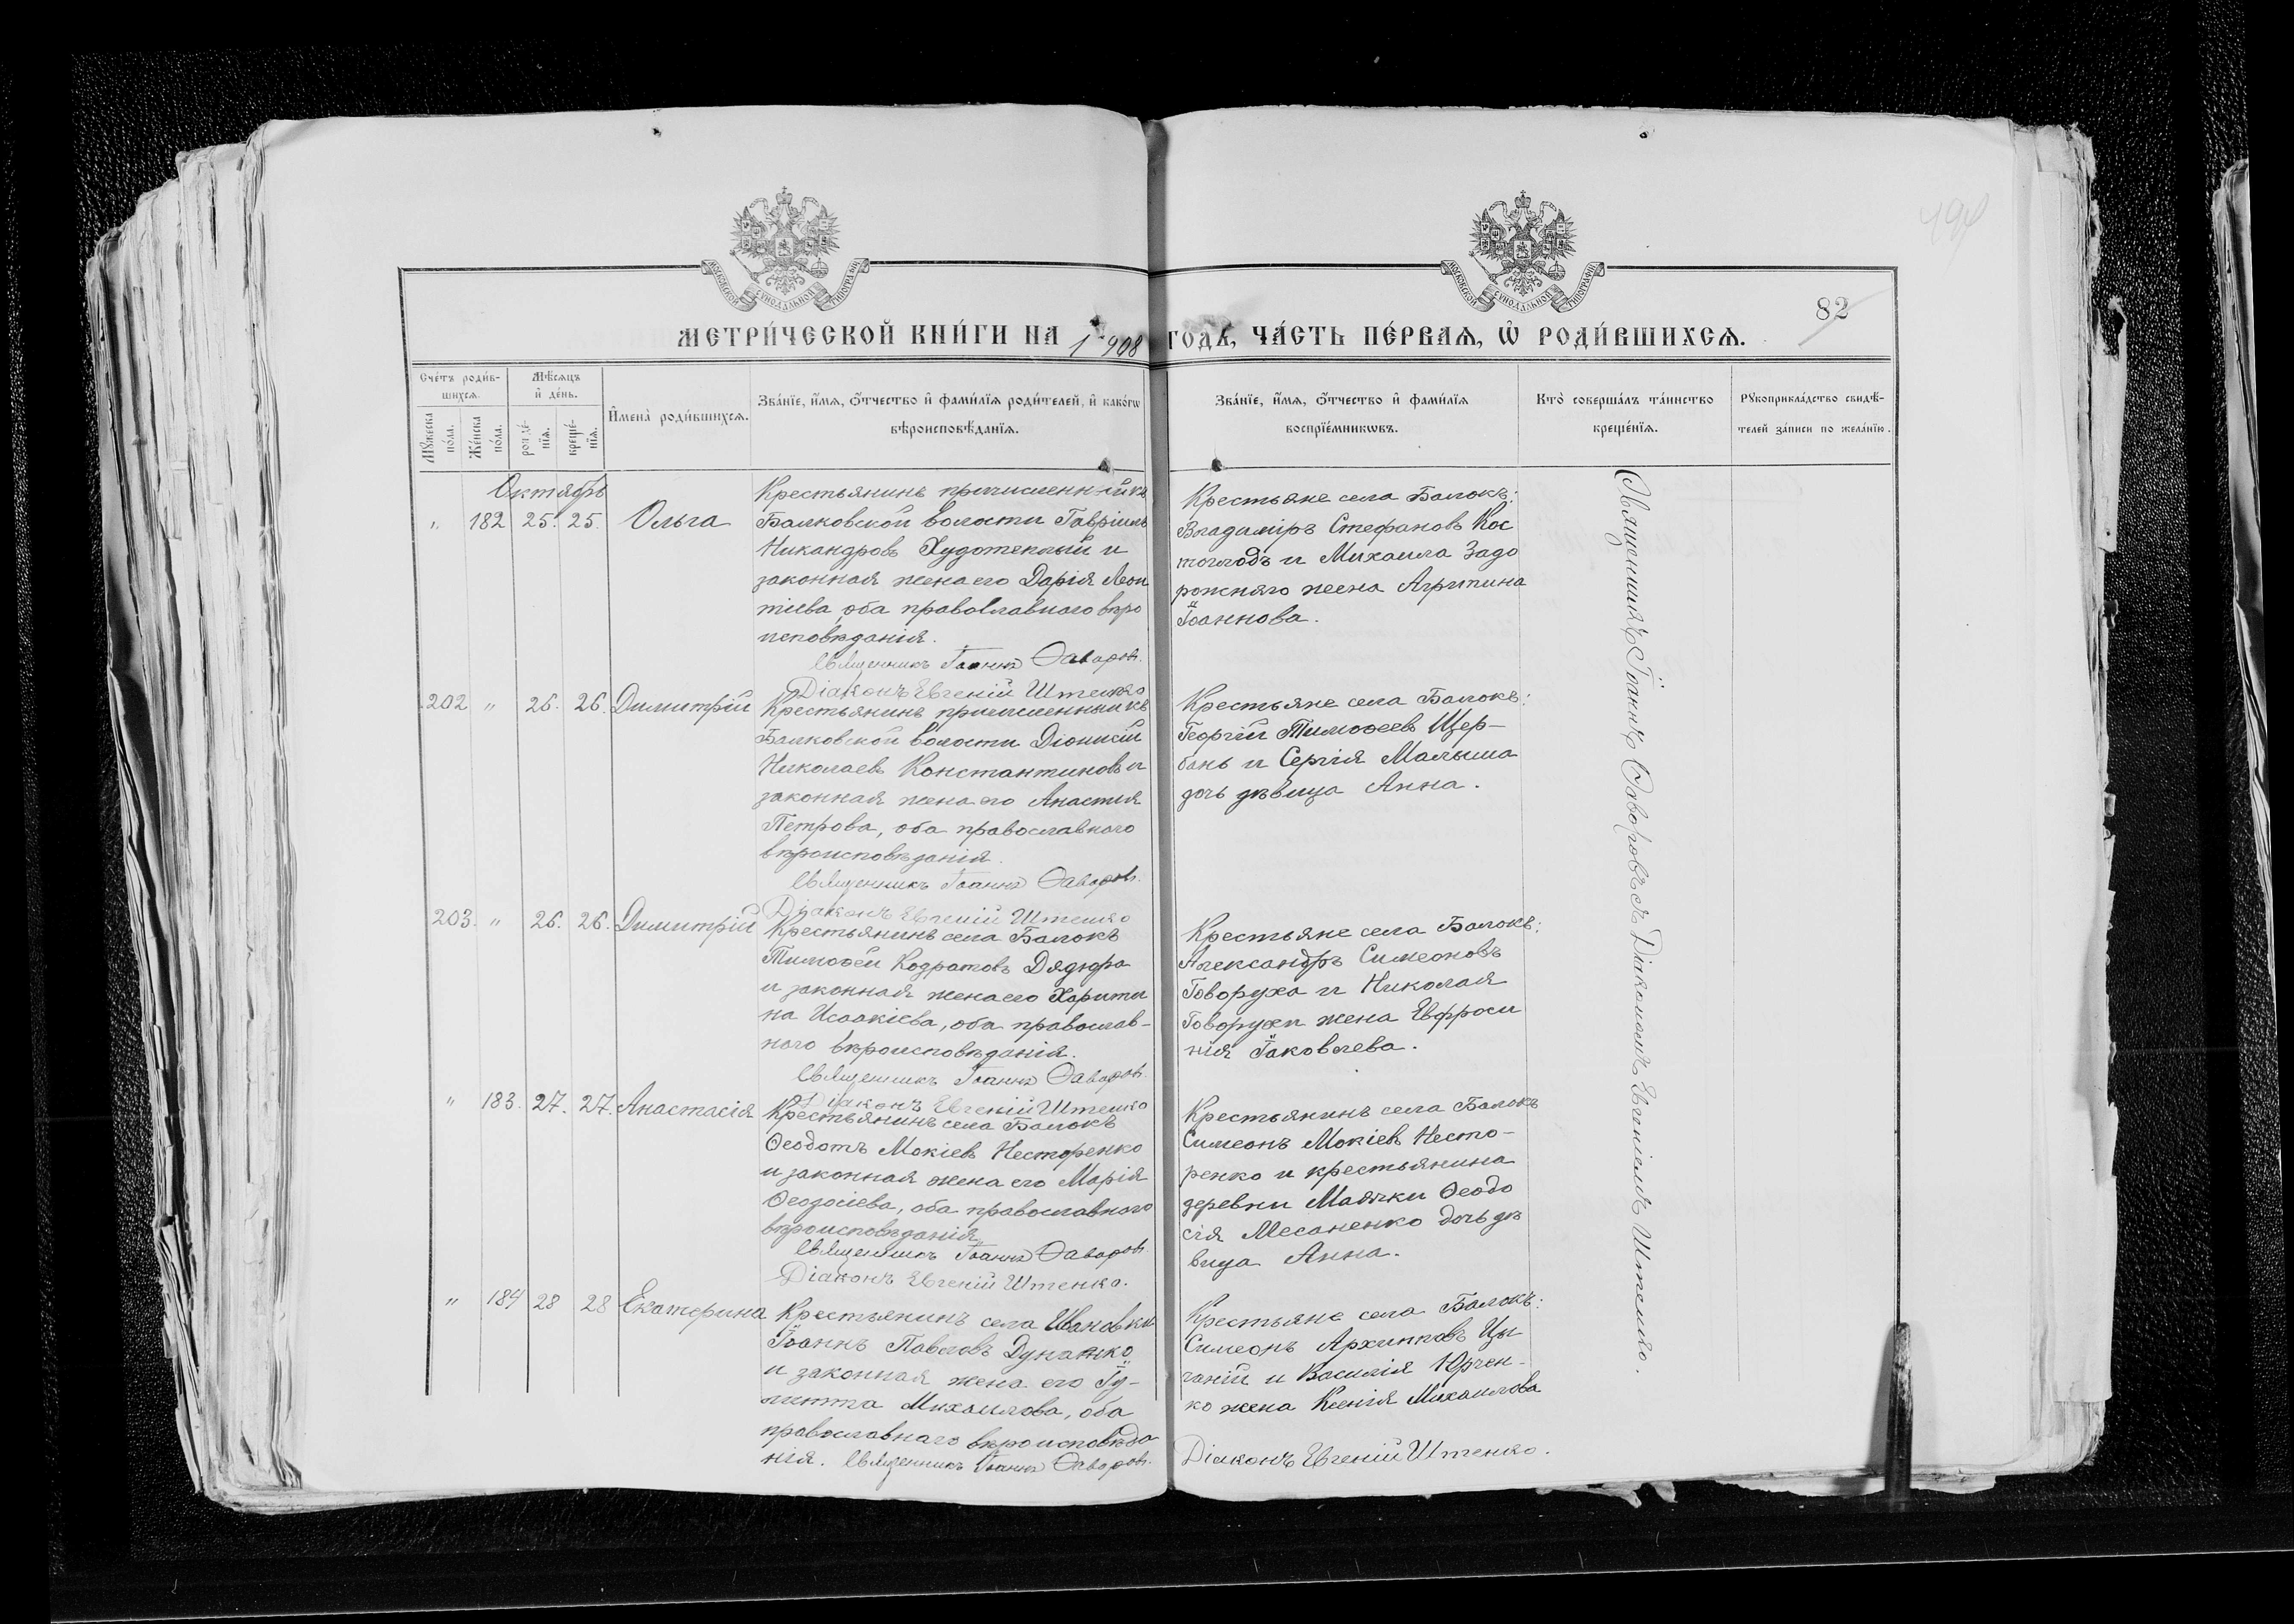 498
82
МЕТРИ́ЧЕСКОЙ КНИ́ГИ НА 1908 ГОДЪ, ЧА́СТЬ ПЕ́РВАЯ, Ѽ РОДИ́ВШИХСЯ.
Сче́тъ роди́в-
шихся.
Мѣ́сяцъ
и҆ де́нь.
Мꙋ́жеска
по́ла.
Же́нска
по́ла.
рожде́-
нїя.
креще́-
нїя.
И҆мена̀ роди́вшихся.
Зва́нїе, и҆́мя, ѻ҆́тчество и҆ фами́лїя роди́телей, и҆ како́гѡ
вѣроисповѣ́данїя.
Зва́нїе, и҆́мя, ѻ҆́тчество и҆ фами́лїя
воспрїе́мникѡвъ.
Кто̀ соверша́лъ та́инство
креще́нїя.
Рꙋкоприкла́дство свидѣ́-
телей за́писи по жела́нїю.
Октябрь
" 182 25. 25. Ольга
Крестьянинъ причисленный къ
Балковской волости Гавріилъ
Никандровъ Худотеплый и
законная жена его Дарія Леон
тіева, оба православнаго вѣро
исповѣданія.
Священникъ Іоаннъ Ѳаворовъ.
Діаконъ Евгеній Штенко
Крестьяне села Балокъ:
Владиміръ Стефановъ Кос
тоглодъ и Михаила Задо
рожняго жена Агрипина
Іоаннова.
Священникъ Іоаннъ Ѳаворовъ съ Діакономъ Евгеніемъ Штенко.
202 " 26. 26. Димитрій
Крестьянинъ причисленный къ
Балковской волости Діонисій
Николаевъ Константиновъ и
законная жена его Анастия
Петрова, оба православнаго
вѣроисповѣданія.
Священникъ Іоаннъ Ѳаворовъ.
Діаконъ Евгеній Штенко
Крестьяне села Балокъ:
Георгій Тимоѳеевъ Щер-
бань и Сергія Малыша
дочь дѣвица Анна.
203. " 26. 26. Димитрій
Крестьянинъ села Балокъ
Тимоѳей Кодратовъ Дядюра
и законная жена его Харити
на Исаакіева, оба православ-
наго вѣроисповѣданія.
Священникъ Іоаннъ Ѳаворовъ.
Діаконъ Евгеній Штенко
Крестьяне села Балокъ:
Александръ Симеоновъ
Говоруха и Николая
Говорухи жена Евфроси
нія Іаковлева.
" 183. 27. 27. Анастасія
Крестьянинъ села Балокъ
Ѳеодотъ Мокіевъ Несторенко
и законная жена его Марія
Ѳеодосіева, оба православнаго
вѣроисповѣданія
Священникъ Іоаннъ Ѳаворовъ.
Діаконъ Евгеній Штенко.
Крестьянинъ села Балокъ
Симеонъ Мокіевъ Несто-
ренко и крестьянина
деревни Маячки Ѳеодо
сія Месаненко дочь дѣ
вица Анна.
" 184 28 28 Екатерина
Крестьянинъ села Ивановки
Іоаннъ Павловъ Дунажко
и законная жена его Іу-
литта Михаилова, оба
православнаго вѣроисповѣда
нія. Священникъ Іоаннъ Ѳаворовъ.
Крестьяне села Балокъ:
Симеонъ Архипповъ Цы
ганій и Василія Юрчен-
ко жена Ксенія Михаилова
Діаконъ Евгеній Штенко.